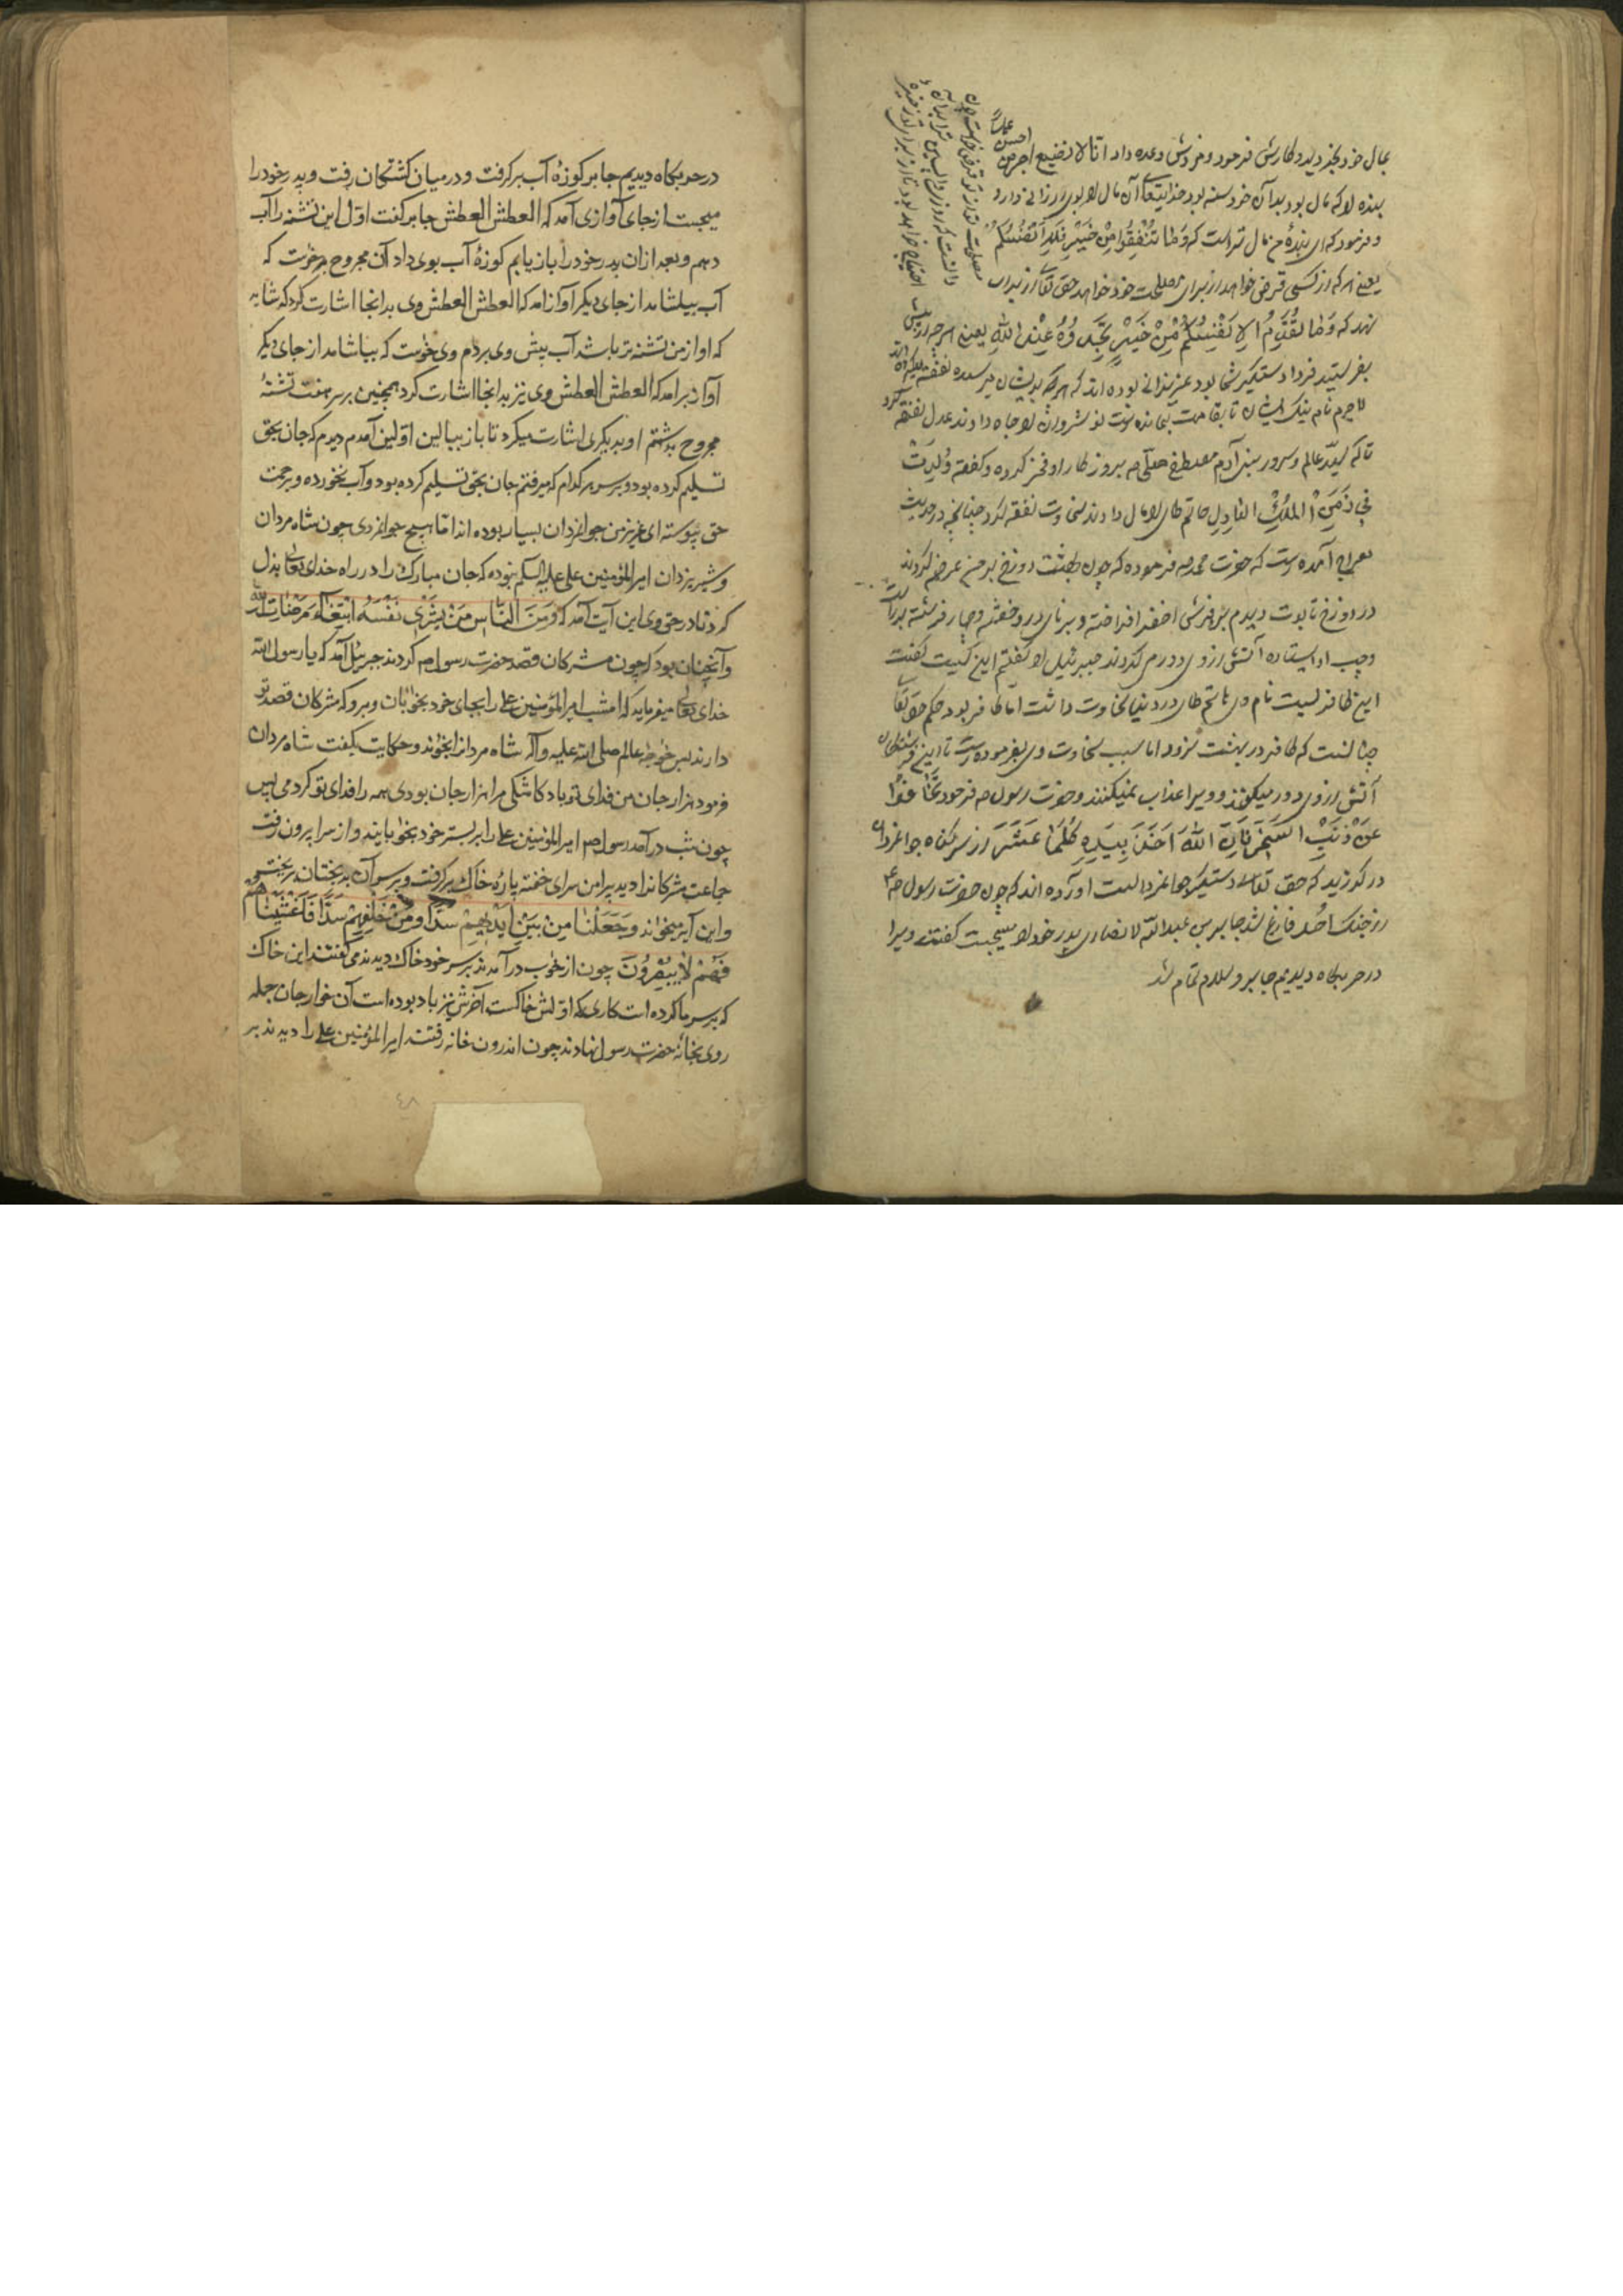 بمال خود بخرید و کارش فرمود و مزدش وعده داد انا لا نضیع اجر من احسن عملا
بنده را که مال بود بدان خرسند بود خدایتعالی آن مال را بوی ارزانی دارد
و فرمود که ای بندهٔ من مال تراست که وَمَا تُنْفِقُوا مِنْ خَیْرٍ فَلِاَنْفُسِکُمْ
یعنی هر که از کسی قرض خواهد از برای مصلحت خود خواهد حق تعالی از برای
مصلحت تو از تو قرض خواست چون
دانست که روز واپسین ترا بدان
احتیاج خواهد بود تا از برای تو ذخیره
نهد که وَمَا تُقَدِّمُوا لِاَنْفُسِکُمْ مِنْ خَیْرٍ تَجِدُوهُ عِنْدَ اللهِ یعنی هر چه از پیش
بفرستید فردا دستگیر شما بود عزیزانی بوده اند که هر چه بدیشان میرسیده نفقه
لاجرم نام نیک ایشان تا بقیامت بمانده است نوشروان را جاه دادند عدل نفقه کرد
تا که سید عالم و سرور بنی آدم مصطفی صلی بروزگار او فخر کرده و گفته وُلِدْتُ
فِی زَمَنِ الْمَلِکِ الْعَادِلِ حاتم طای را مال دادند سخاوت نفقه کرد چنانچه در حدیث
معراج آمده است که حضرت محمد ص فرموده که چون بهشت و دوزخ بر من عرض کردند
در دوزخ تابوت دیدم بر فرشی اخضر انداخته و برنای در و خفته و چهار فرشته بر راست
و چپ او ایستاده آتش از وی دور می کردند جبرئیل را گفتم این کیست گفت
این کافریست نام وی حاتم طای در دنیا سخاوت داشت اما کافر بود حکم حق تعالی
چنانست که کافر در بهشت نرود اما سبب سخاوت وی بفرموده است تا این فرشتگان
آتش از وی دور میکنند و ویرا عذاب نمیکنند و حضرت رسول ص فرمود تَجَافَوْا
عَنْ ذَنْبِ السَّخِیِّ فَاِنَّ اللهَ آخِذٌ بِیَدِهِ کُلَّمَا عَثَرَ از سر گناه جوانمردان
در گذرید که حق تعالی دستگیر جوانمردانست آورده اند که چون حضرت رسول ص از
از جنگ احد فارغ شد جابر بن عبدالله الانصاری پدر خود را میجست گفتند ویرا
در حربگاه دیدیم جابر والسلام تمام شد
در حربگاه دیدیم جابر کوزهٔ آب برگرفت و در میان کشتگان رفت و پدر خود را
میجست از جای آوازی آمد که العطش العطش جابر گفت اوّل این تشنه را آب
دهم و بعد ازان پدر خود را بازیابم کوزهٔ آب بوی داد آن مجروح میخواست که
آب بیاشامد از جای دیگر آواز آمد که العطش العطش وی بدانجا اشارت کرد که شاید
که او از من تشنه تر باشد آب پیش وی بردم وی خواست که بیاشامد از جای دیگر
آواز برآمد که العطش العطش وی نیز بدانجا اشارت کرد همچنین بر سر هفت تشنهٔ
مجروح بداشتم او بدیگری اشارت میکرد تا باز ببالین اولین آمدم دیدم که جان بحق
تسلیم کرده بود و بر سر هر کدام که میرفتم جان بحق تسلیم کرده بود و آب نخورده و برحمت
حق پیوسته ای عزیز من جوانمردان بسیار بوده اند امّا هیچ جوانمردی چون شاه مردان
و شیر یزدان امیرالمؤمنین علی علیه السلم نبوده که جان مبارک را در راه خدای تعالی بذل
کرد تا در حق وی این آیت آمد که وَمِنَ النَّاسِ مَنْ یَشْرِی نَفْسَهُ ابْتِغَاءَ مَرْضَاتِ الله
و آنچنان بود که چون مشرکان قصد حضرت رسول ص کردند جبرئیل آمد که یا رسول الله
خدای تعالی میفرماید که امشب امیرالمؤمنین علی را بجای خود بخوابان و برو که مشرکان قصد تو
دارند پس خواجه عالم صلی الله علیه وآله شاه مردانرا بخواند و حکایت بگفت شاه مردان
فرمود هزار جان من فدای تو باد کاشکی مرا هزار جان بودی همه را فدای تو کردمی پس
چون شب درآمد رسول ص امیرالمؤمنین علی را بر بستر خود بخوابانید و از سرا بیرون رفت
جماعت مشرکانرا دید پیرامن سرای خفته پارهٔ خاک برگرفت و بر سر آن بدبختان بریخت
و این آیه میخواند وَجَعَلْنَا مِنْ بَیْنِ اَیْدِیهِمْ سَدًّا وَمِنْ خَلْفِهِمْ سَدًّا فَاَغْشَیْنَاهُمْ
فَهُمْ لَا یُبْصِرُونَ چون از خواب درآمدند بر سر خود خاک دیدند می گفتند این خاک
که بر سر ما کرده است کاری که اوّلش خاکست آخرش نیز باد بوده است آن خوارجان جمله
روی بخانهٔ حضرت رسول نهادند چون اندرون خانه رفتند امیرالمؤمنین علی را دیدند بر
٤٨